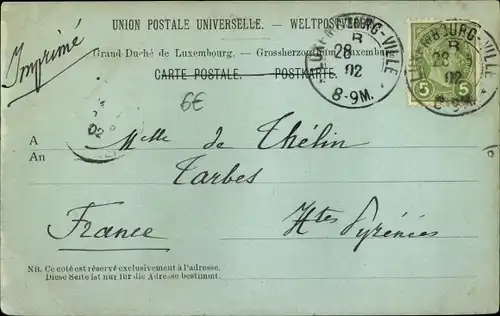 UNION POSTALE UNIVERSELLE. – WELTPOSTVEREIN.
Grand-Duché de Luxembourg. – Grossherzogthum Luxemburg.
CARTE POSTALE. – POSTKARTE.
Imprimé
LUXEMBOURG-VILLE
B
28
02
8-9M.
LUXEMBOURG-VILLE
B
28
02
8-9M.
5 5
6€
02
A Mlle de Thélin
An
Tarbes
France Htes Pyrénées
NB. Ce coté est réservé exclusivement à l'adresse.
Diese Seite ist nur für die Adresse bestimmt.